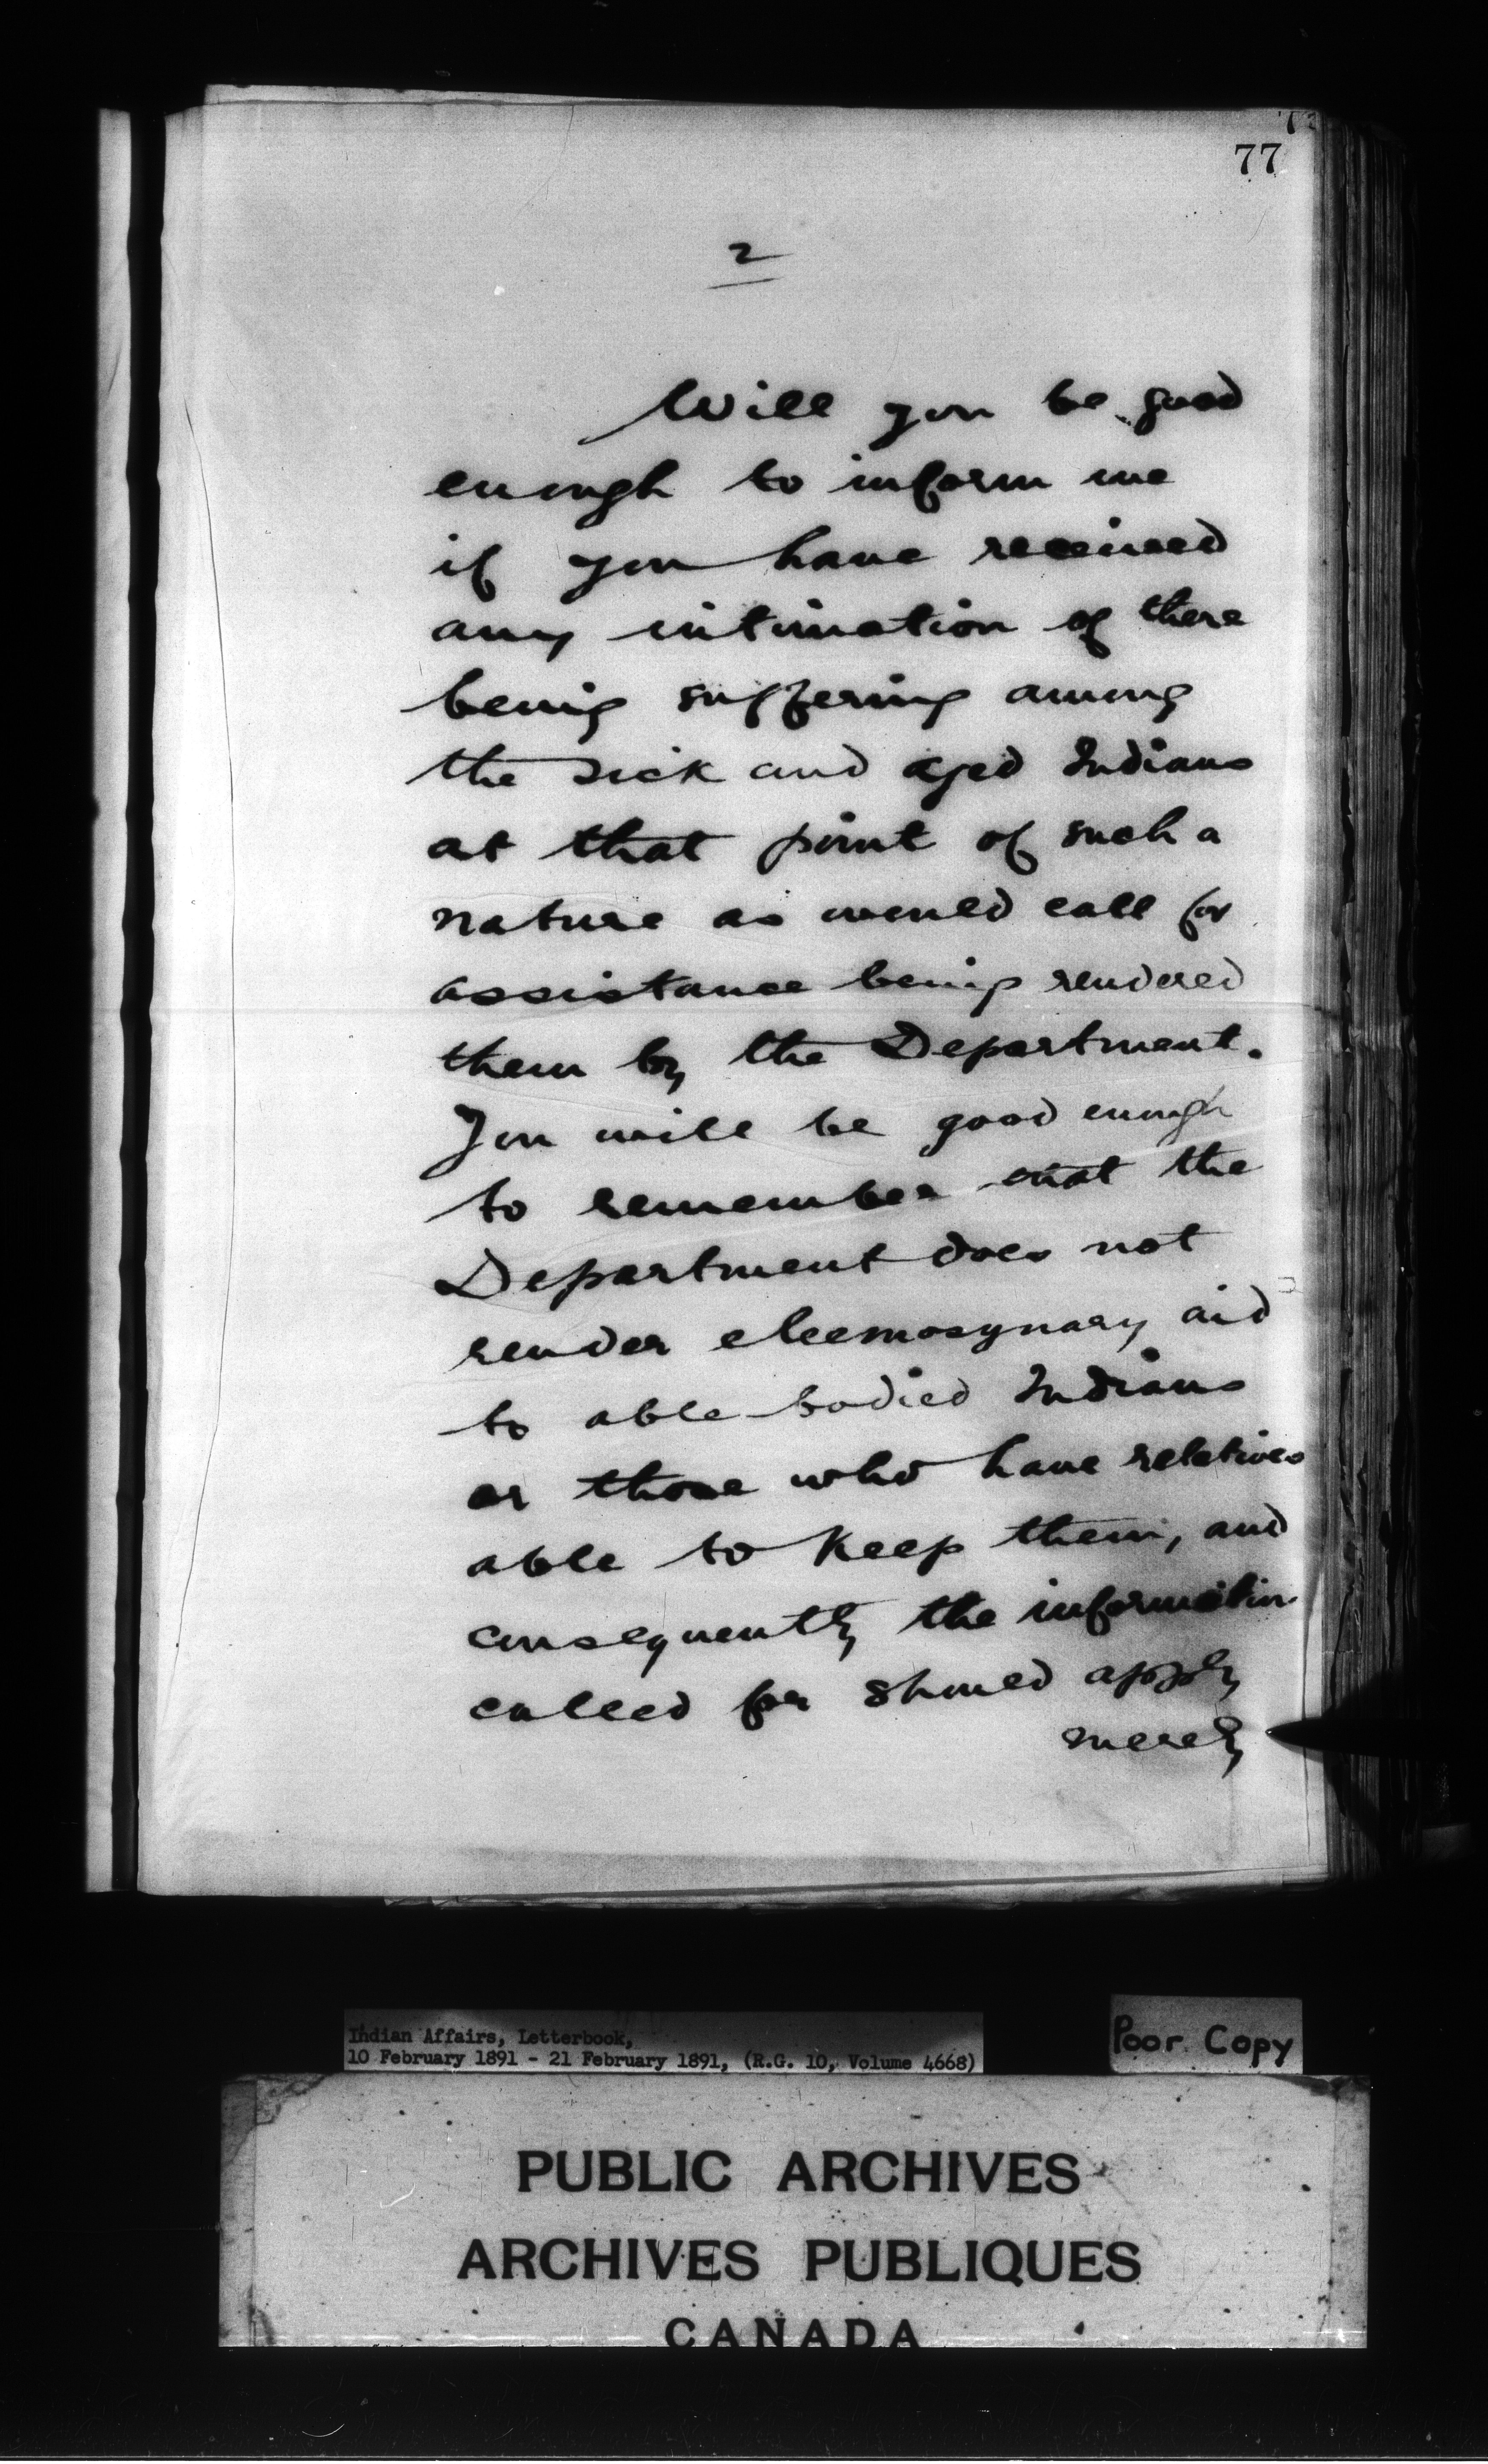 77
2
Will you be good
enough to inform me
if you have received
any intimation of there
being suffering among
the sick and aged Indians
at that point of such a
nature as would call for
assistance being rendered
them by the Department.
You will be good enough
to remember that the
Department does not
render eleemosynary aid
to able bodied Indians
or those who have relatives
able to keep them, and
consequently the information
called for should apply
merely
Indian Affairs, Letterbook,
10 February 1891 - 21 February 1891, (R.G. 10, Volume 4668)
Poor Copy
PUBLIC ARCHIVES
ARCHIVES PUBLIQUES
CANADA